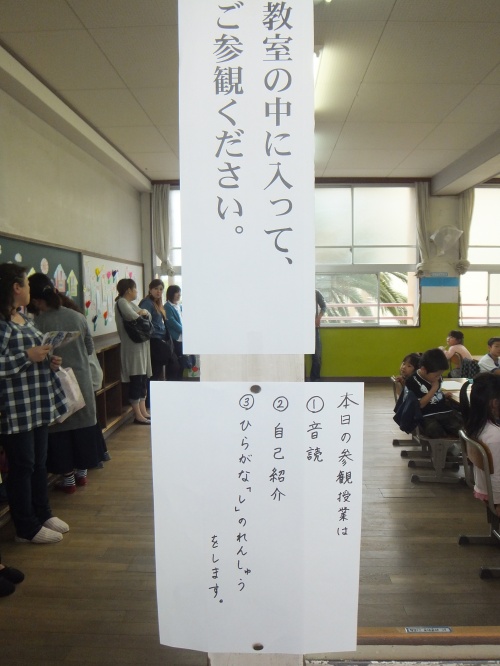 教室の中に入って、
ご参観ください。
本日の参観授業は
①音読
②自己紹介
③ひらがな「し」のれんしゅう
をします。